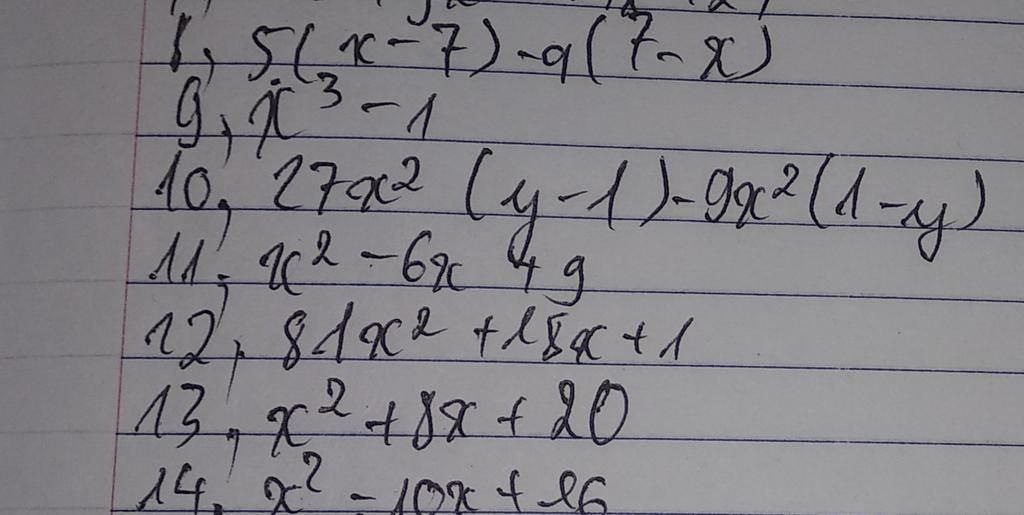 8, 5(x-7)-a(7-x)
9, x³-1
10, 27x² (y-1)-9x²(1-y)
11, x²-6x+9
12, 81x²+18x+1
13, x²+8x+20
14, x²-10x+